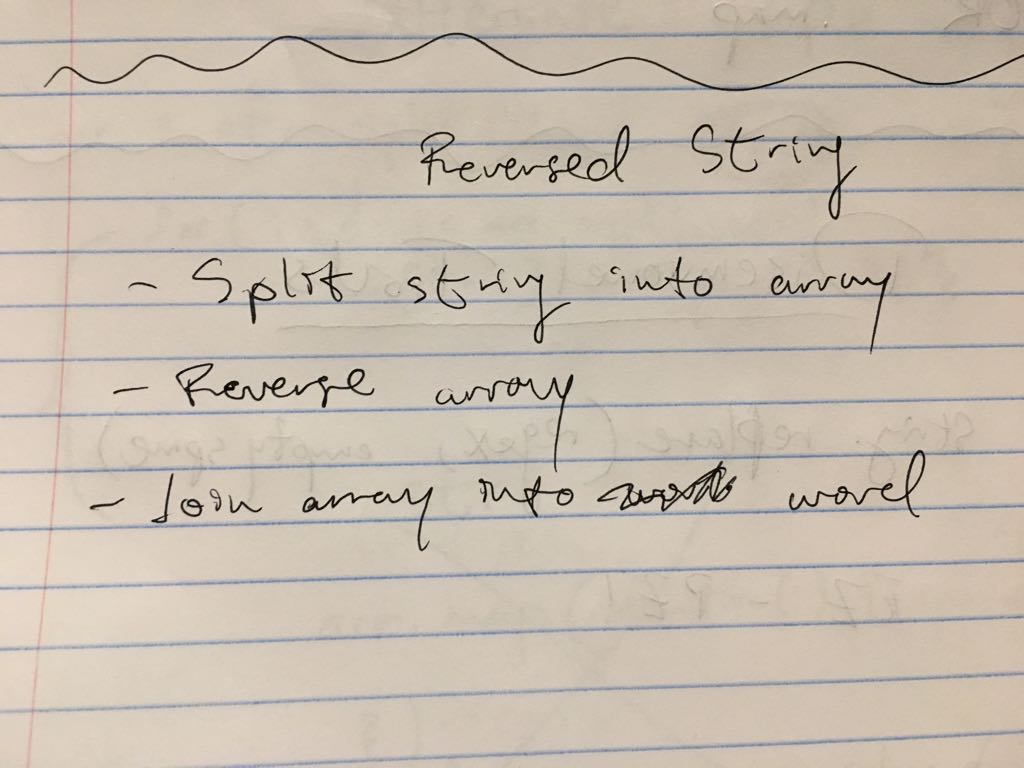 Reversed String
- Split string into array
- Reverse array
- Join array into word